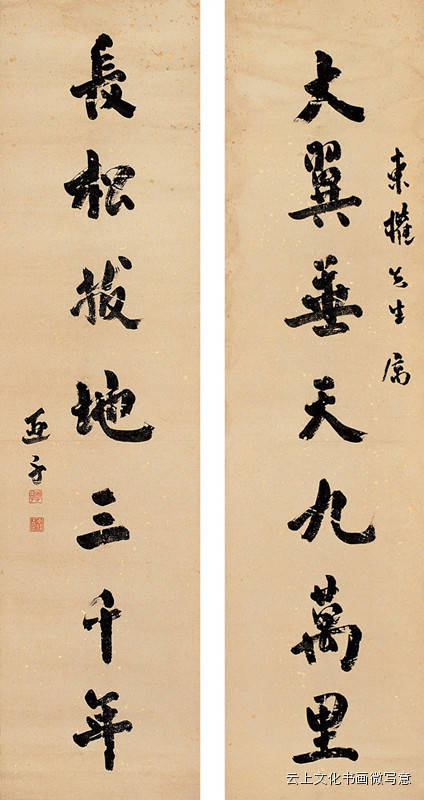 東權先生属
大翼垂天九萬里
長松拔地三千年
亞子
云上文化书画微写意